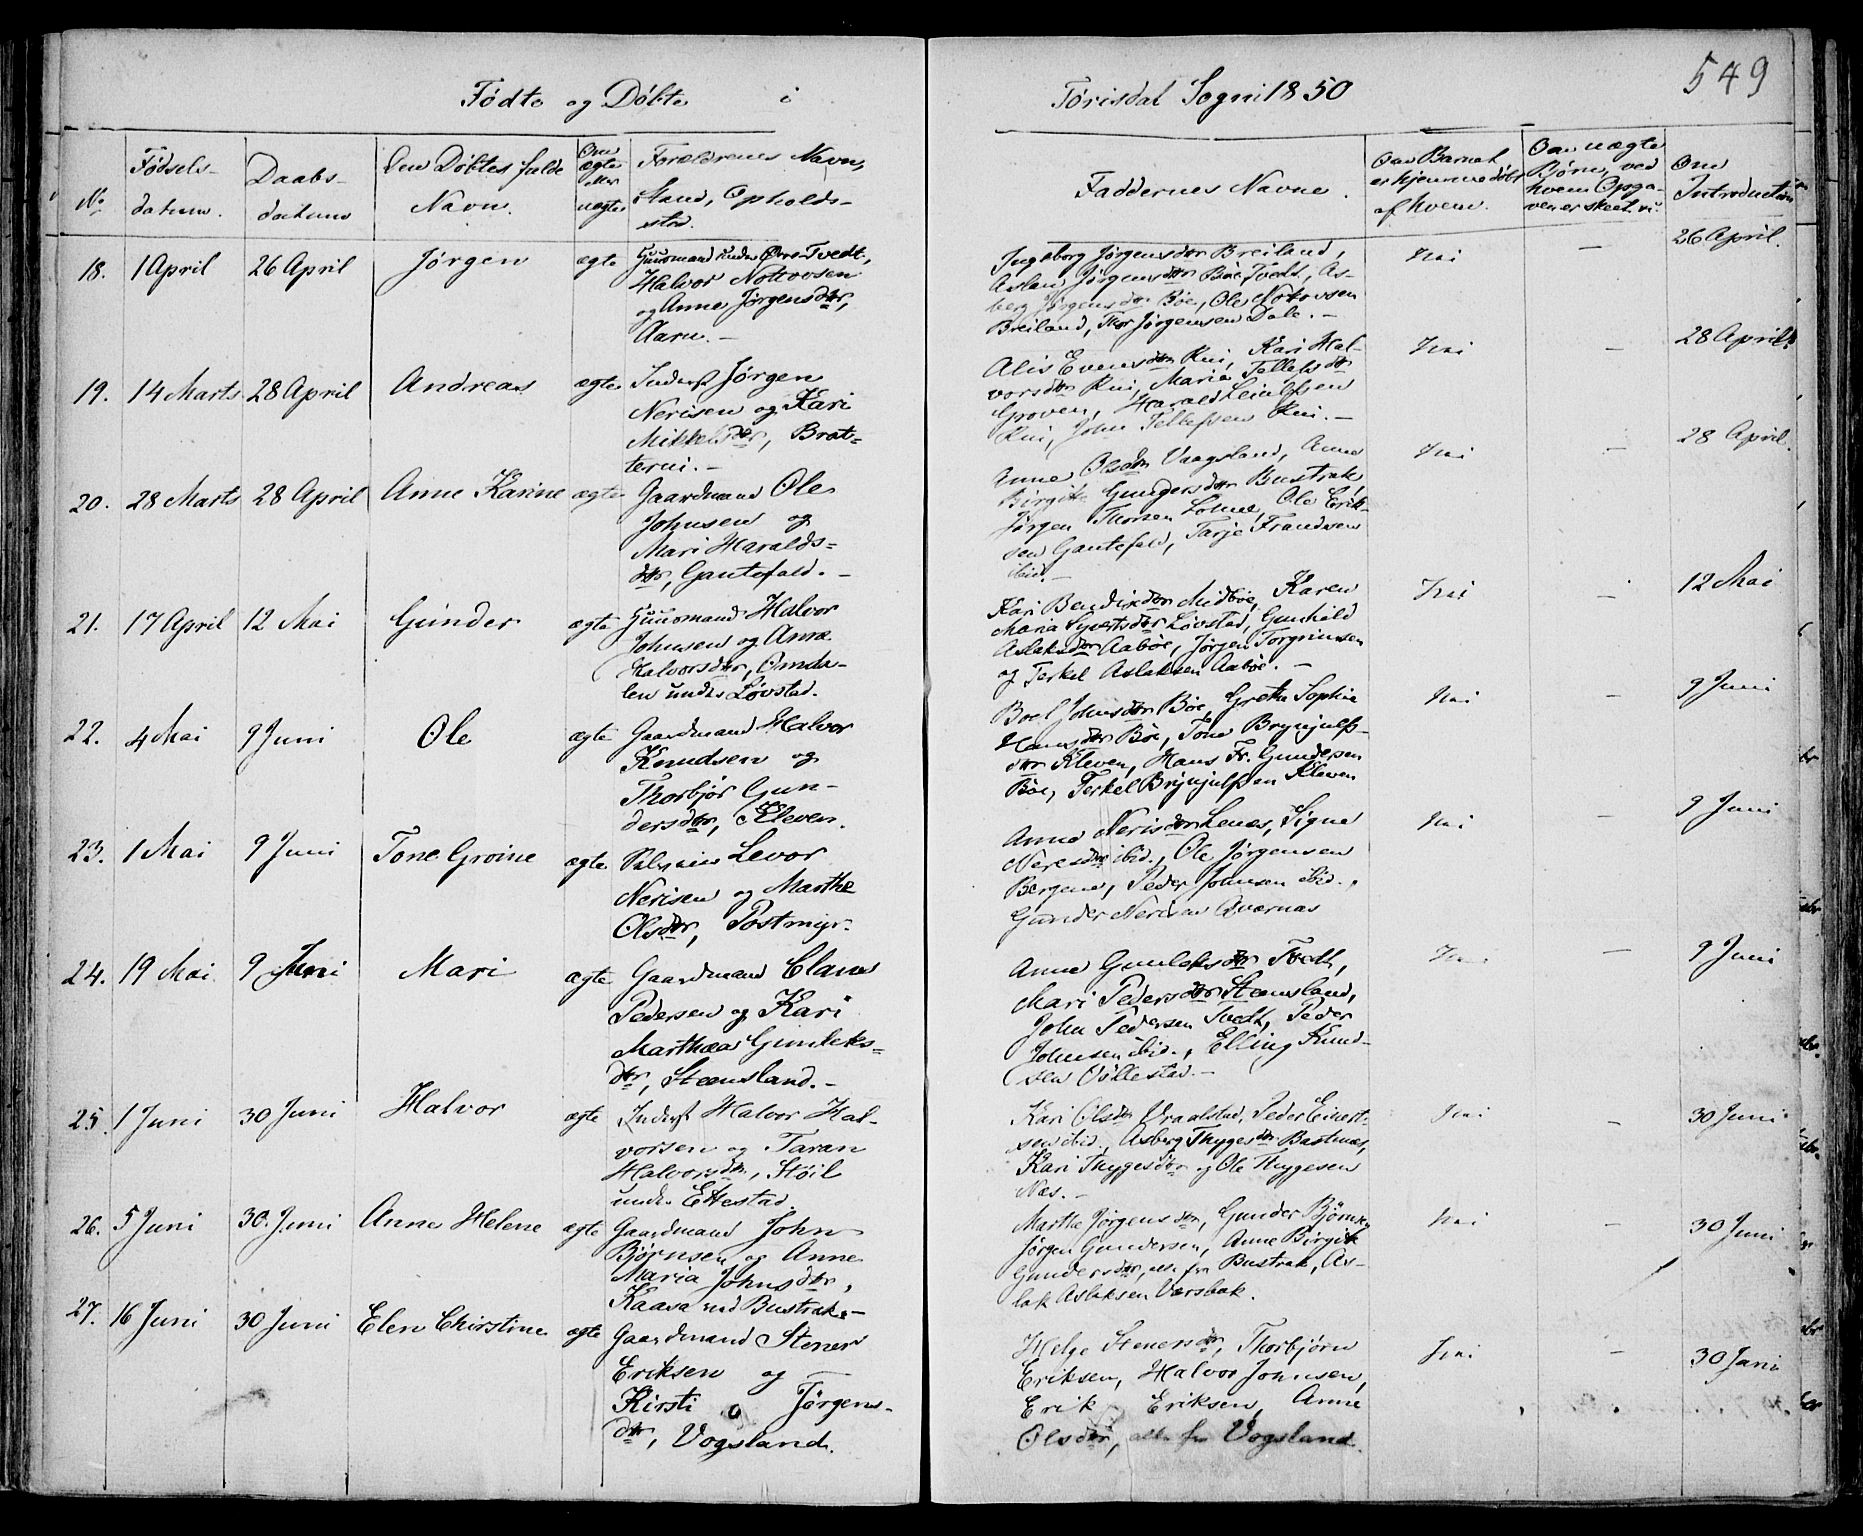 549
Fødte og Døbte i Tørisdal Sogn i 1850
No
Fødsels-
datum.
Daabs-
datum
Den Døbtes fulde
Navn.
Om
ægte
eller
uægte
Forældrenes Navn,
Stand, Opholds-
sted.
Faddernes Navne.
Om Barnet
er hjemmedøbt
af hvem.
Om uægte
Børn, ved
hvem Opga-
ven er skeet
Om
Introduction
18. 1 April 26 April Jørgen ægte
Huusmand under Øvre Tvedt,
Halvor Notovsen
og Anne Jørgensdtr,
Aarn.-
Ingeborg Jørgensdtr Breiland,
Aslau Jørgensdtr Böe, Tvedt, As-
berg Jørgensdtr Böe, Ole Notovsen
Breiland, Thor Jørgensen Dale.-
Nei
—
26 April.
19. 14 Marts 28 April Andreas ægte
Inderst Jørgen
Nerisen og Kari
Mikkelsdtr, Brat-
terui.-
Alis Evensdtr Rui, Kari Hal-
vorsdtr Rui, Maria Tellefsdtr
Groven, Harald Leiulfsen
Rui, John Tellefsen Rui.-
Nei
—
28 April
20. 28 Marts 28 April Anne Karine ægte
Gaardmand Ole
Johnsen og
Mari Haralds-
dtr, Gautefald.-
Anne Olsdtr Vaagsland, Anne
Birgite Gundersdtr Bustrak,
Jørgen Thorsen Lofne, Ole Erik-
sen Gautefald, Tarje Frandsen
ibid.-
Nei
—
28 April
21. 17 April 12 Mai Gunder ægte
Huusmand Halvor
Johnsen og Anne
Halvorsdtr, Omda-
len under Løvstad.
Kari Bendixdtr Midböe, Karen
Maria Syvertsdtr Løvstad, Gunhild
Aslaksdtr Aaböe, Jørgen Torgrimsen
og Terkel Aslaksen Aaböe.-
Nei
—
12 Mai
22. 4 Mai 9 Juni Ole ægte
Gaardmand Halvor
Knudsen og
Thorbjør Gun-
dersdtr, Kleven.
Boel Johnsdtr Böe, Grethe Sophie
Hansdtr Böe, Tone Brynjulfs-
dtr Kleven, Hans Fr. Gundersen
Böe, Terkel Brynjulfsen Kleven
Nei
—
9 Juni
23. 1 Mai 9 Juni Tone Groine ægte
Levor
Nerisen og Marthe
Olsdtr, Postmyr.
Anne Nerisdtr Lenes, Signe
Neresdtr ibid., Ole Jørgensen
Bergene, Peder Johnsen ibid.,
Gunder Nerisen Qvernæs
Nei
—
9 Juni
24. 19 Mai 9 Juni Mari ægte
Gaardmand Claus
Pedersen og Kari
Marthea Gunleks-
dtr, Steensland.-
Anne Gunleksdtr Tveth,
Mari Pedersdtr Steensland,
John Pedersen Tveth, Peder
Johnsen ibid., Elling Knud-
sen Vøllestad.-
Nei
—
9 Juni
25. 1 Juni 30 Juni Halvor ægte
Inderst Halvor Hal-
vorsen og Taran
Halvorsdtr, Støil
under Ettestad
Kari Olsdtr Vraalstad, Peder Einert-
sen ibid. Asberg Thygesdtr Bastnæs,
Kari Thygesdtr og Ole Thygesen
Næs.-
Nei
—
30 Juni
26. 5 Juni 30. Juni Anne Helene ægte
Gaardmand John
Bjørnsen og Anne
Maria Johnsdtr,
Kaasa ved Bustrak.-
Marthe Jørgensdtr, Gunder Bjørnsen
Jørgen Gundersen, Anne Birgite
Gundersdtr, alle fra Bustrak, As-
lak Aslaksen Værsbak.
Nei
—
30 Juni
27. 16 Juni 30 Juni Elen Chirstine ægte
Gaardmand Stener
Eriksen og
Kirsti Jørgens-
dtr, Vogsland.
Helge Stenersdtr, Thorbjørn
Eriksen, Halvor Johnsen,
Erik Eriksen, Anne
Olsdtr, alle fra Vogsland.
Nei
—
30 Juni